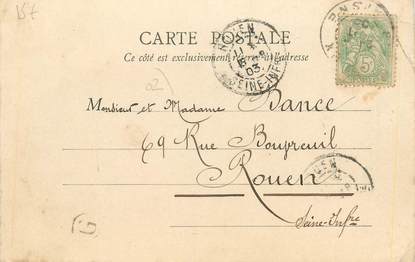 15f
CARTE POSTALE
Ce côté est exclusivement réservé à l'adresse
ROUEN
03
SEINE-INFRE
5
02
Monsieur et Madame Dance
69 Rue Bouvreuil
Rouen
Seine-Infre